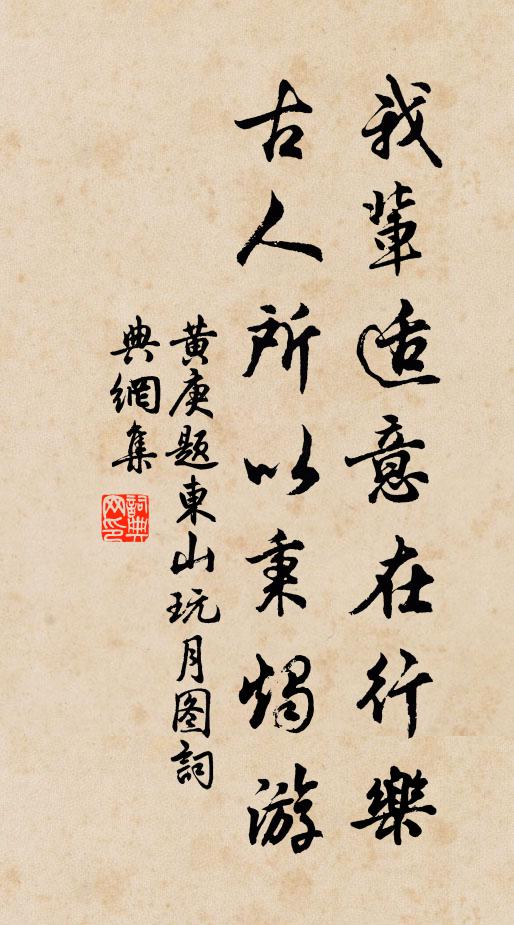 我輩适意在行樂
古人所以秉燭游
黄庚题東山玩月图詞
典網集
詞典网印